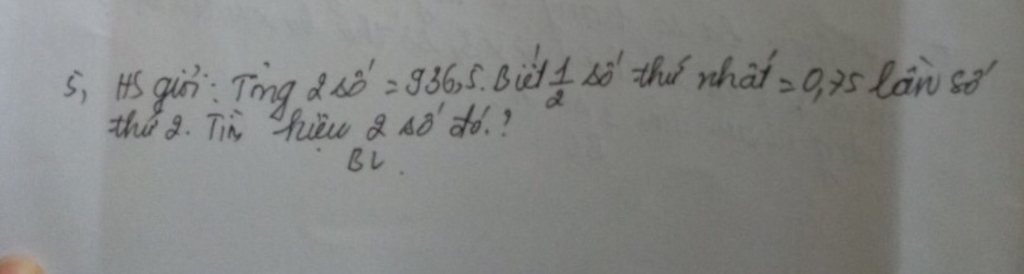 5, HS giỏi: Tổng 2 số = 936,5. Biết 1/2 số thứ nhất = 0,75 lần số
thứ 2. Tìm hiệu 2 số đó.?
BL.